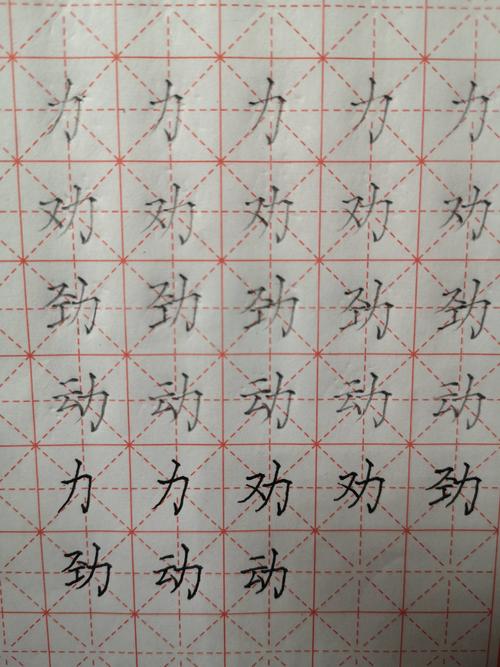 力力力力力
劝劝劝劝劝
劲劲劲劲劲
动动动动动
力力劝劝劲
劲动动